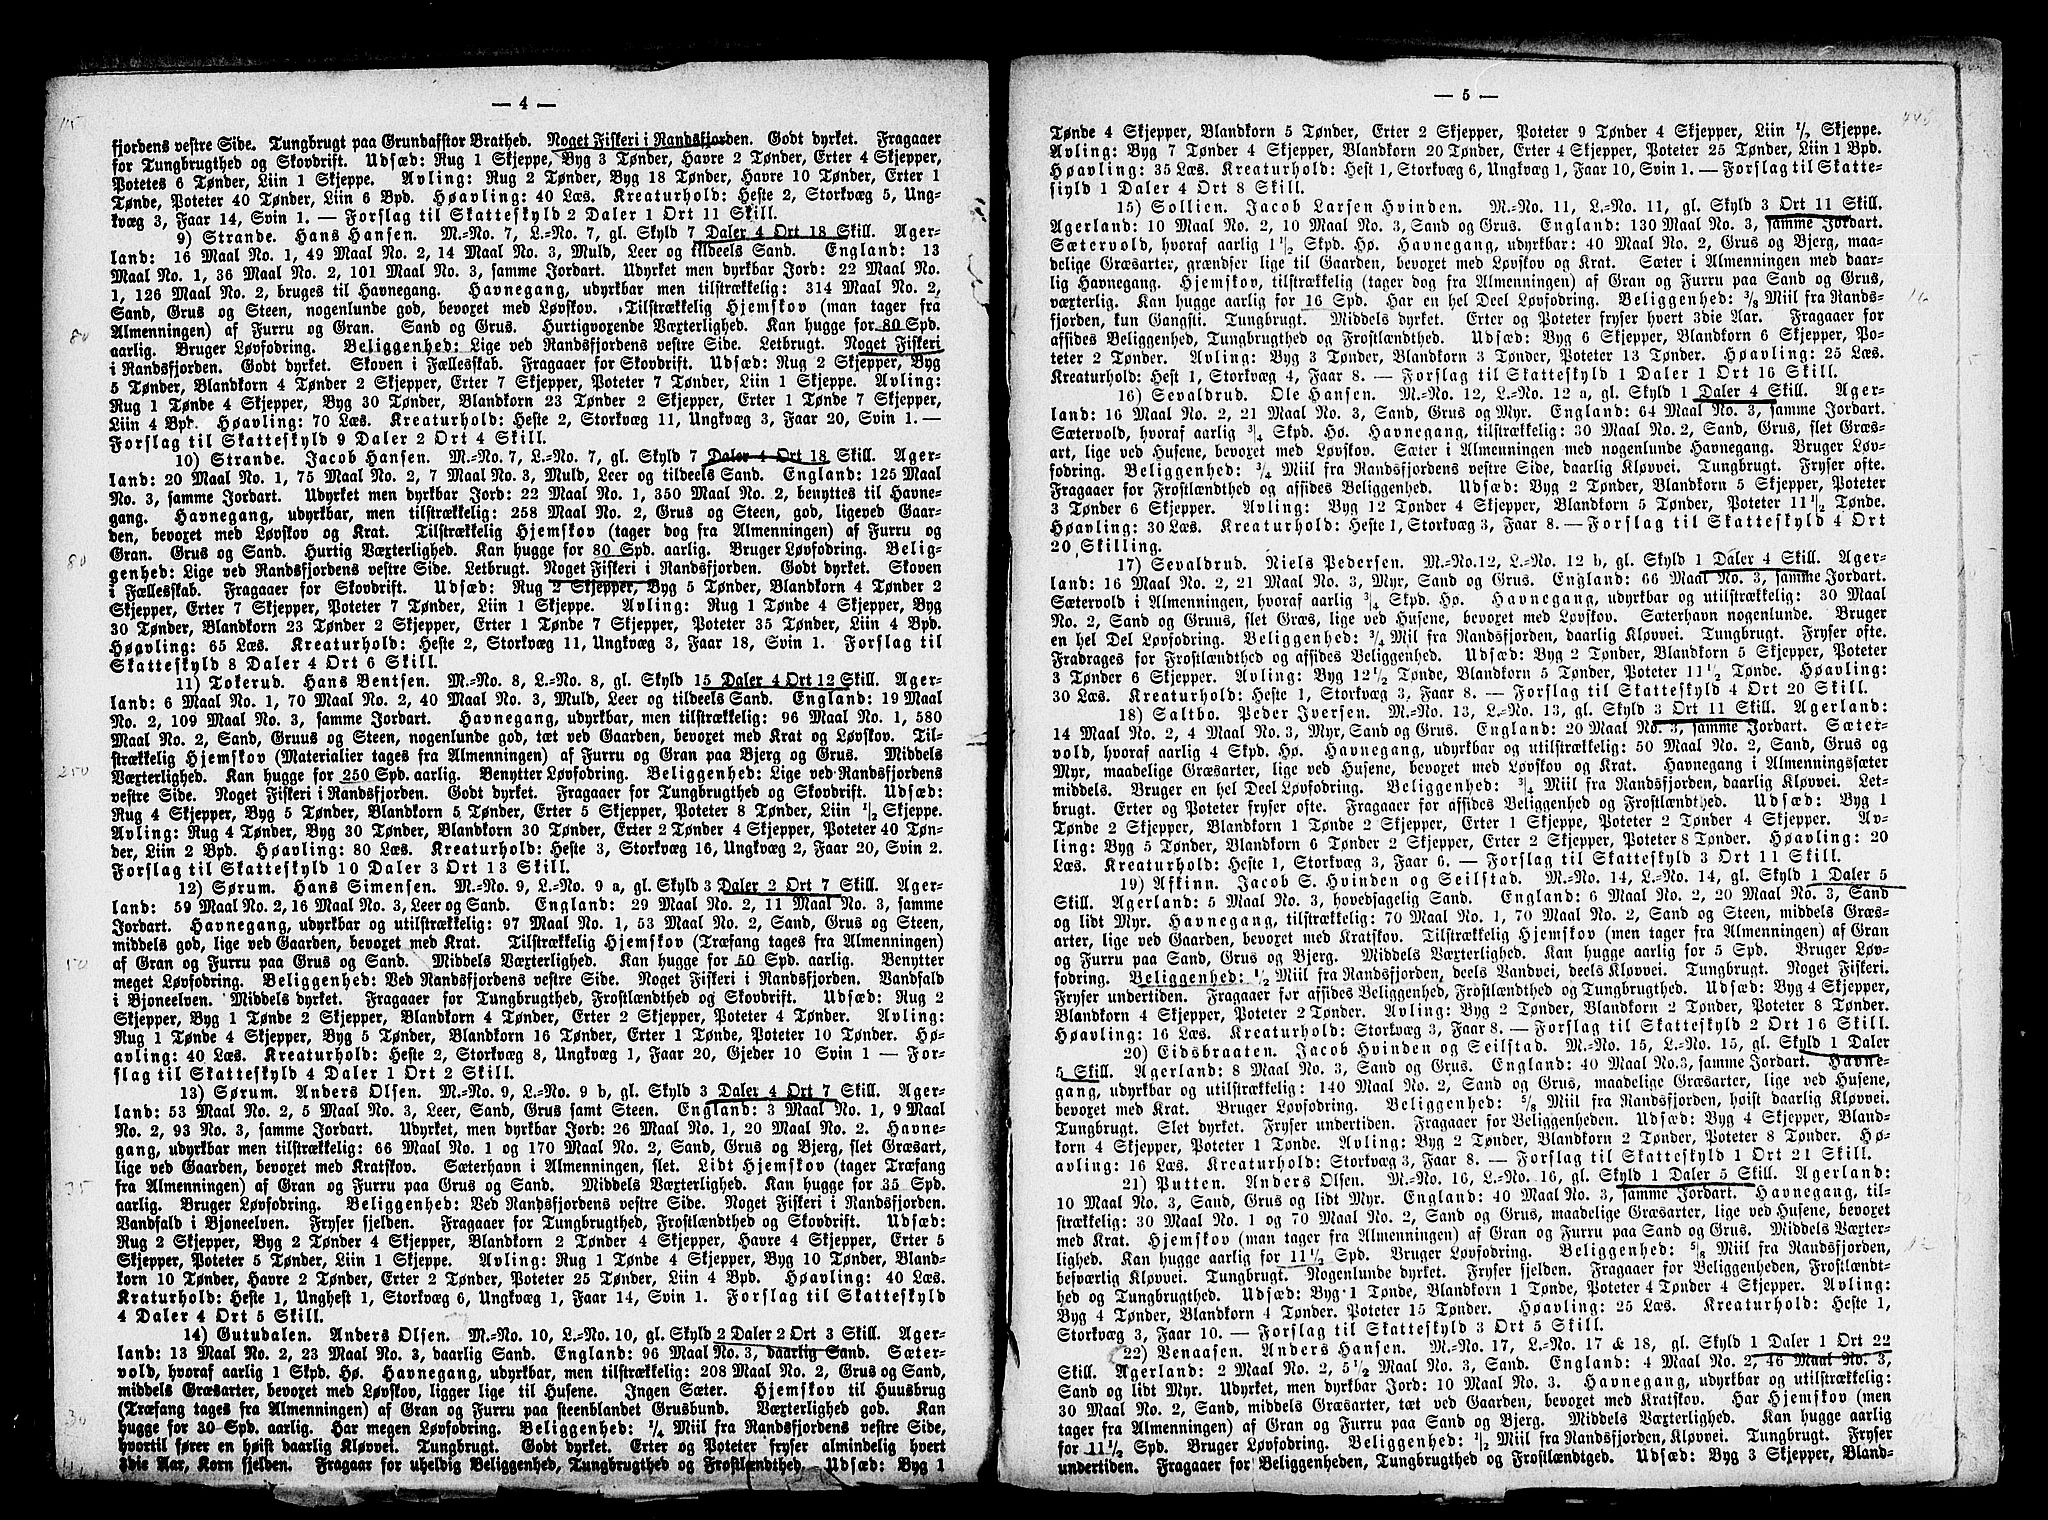 — 4 —
115
fjordens vestre Side. Tungbrugt paa Grundafstor Brathed. Noget Fiskeri i Randsfjorden. Godt dyrket. Fragaaer
for Tungbrugthed og Skovdrift. Udsæd: Rug 1 Skjeppe, Byg 3 Tønder, Havre 2 Tønder, Erter 4 Skjepper,
Potetes 6 Tønder, Liin 1 Skjeppe. Avling: Rug 2 Tønder, Byg 18 Tønder, Havre 10 Tønder, Erter 1
Tønde, Poteter 40 Tønder, Liin 6 Bpd. Høavling: 40 Læs. Kreaturhold: Heste 2, Storkvæg 5, Ung-
kvæg 3, Faar 14, Svin 1. — Forslag til Skatteskyld 2 Daler 1 Ort 11 Skill.
9) Strande. Hans Hansen. M.-No. 7, L.-No. 7, gl. Skyld 7 Daler 4 Ort 18 Skill. Ager-
land: 16 Maal No. 1, 49 Maal No. 2, 14 Maal No. 3, Muld, Leer og tildeels Sand. England: 13
Maal No. 1, 36 Maal No. 2, 101 Maal No. 3, samme Jordart. Udyrket men dyrkbar Jord: 22 Maal No.
1, 126 Maal No. 2, bruges til Havnegang. Havnegang, udyrkbar men tilstrækkelig: 314 Maal No. 2,
Sand, Grus og Steen, nogenlunde god, bevoxet med Løvskov. Tilstrækkelig Hjemskov (man tager fra
Almenningen) af Furru og Gran. Sand og Grus. Hurtigvoxende Væxterlighed. Kan hugge for 80 Spd.
80
aarlig. Bruger Løvfodring. Beliggenhed: Lige ved Randsfjordens vestre Side. Letbrugt. Noget Fiskeri
i Randsfjorden. Godt dyrket. Skoven i Fællesskab. Fragaaer for Skovdrift. Udsæd: Rug 2 Skjepper, Byg
5 Tønder, Blandkorn 4 Tønder 2 Skjepper, Erter 7 Skjepper, Poteter 7 Tønder, Liin 1 Skjeppe. Avling:
Rug 1 Tønde 4 Skjepper, Byg 30 Tønder, Blandkorn 23 Tønder 2 Skjepper, Erter 1 Tønde 7 Skjepper,
Liin 4 Bpd. Høavling: 70 Læs. Kreaturhold: Heste 2, Storkvæg 11, Ungkvæg 3, Faar 20, Svin 1. —
Forslag til Skatteskyld 9 Daler 2 Ort 4 Skill.
10) Strande. Jacob Hansen. M.-No. 7, L.-No. 7, gl. Skyld 7 Daler 4 Ort 18 Skill. Ager-
land: 20 Maal No. 1, 75 Maal No. 2, 7 Maal No. 3, Muld, Leer og tildeels Sand. England: 125 Maal
No. 3, samme Jordart. Udyrket men dyrkbar Jord: 22 Maal No. 1, 350 Maal No. 2, benyttes til Havne-
gang. Havnegang, udyrkbar, men tilstrækkelig: 258 Maal No. 2, Grus og Steen, god, ligeved Gaar-
den, bevoxet med Løvskov og Krat. Tilstrækkelig Hjemskov (tager dog fra Almenningen) af Furru og
Gran. Grus og Sand. Hurtig Væxterlighed. Kan hugge for 80 Spd. aarlig. Bruger Løvfodring. Belig-
80
genhed: Lige ved Randsfjordens vestre Side. Letbrugt. Noget Fiskeri i Randsfjorden. Godt dyrket. Skoven
i Fællesskab. Fragaaer for Skovdrift. Udsæd: Rug 2 Skjepper, Byg 5 Tønder, Blandkorn 4 Tønder 2
Skjepper, Erter 7 Skjepper, Poteter 7 Tønder, Liin 1 Skjeppe. Avling: Rug 1 Tønde 4 Skjepper, Byg
30 Tønder, Blandkorn 23 Tønder 2 Skjepper, Erter 1 Tønde 7 Skjepper, Poteter 35 Tønder, Liin 4 Bpd.
Høavling: 65 Læs. Kreaturhold: Heste 2, Storkvæg 11, Ungkvæg 3, Faar 18, Svin 1. Forslag til
Skatteskyld 8 Daler 4 Ort 6 Skill.
11) Tokerud. Hans Bentsen. M.-No. 8, L.-No. 8, gl. Skyld 15 Daler 4 Ort 12 Skill. Ager-
land: 6 Maal No. 1, 70 Maal No. 2, 40 Maal No. 3, Muld, Leer og tildeels Sand. England: 19 Maal
No. 2, 109 Maal No. 3, samme Jordart. Havnegang, udyrkbar, men tilstrækkelig: 96 Maal No. 1, 580
Maal No. 2, Sand, Gruus og Steen, nogenlunde god, tæt ved Gaarden, bevoxet med Krat og Løvskov. Til-
strækkelig Hjemskov (Materialier tages fra Almenningen) af Furru og Gran paa Bjerg og Grus. Middels
250
Væxterlighed. Kan hugge for 250 Spd. aarlig. Benytter Løvfodring. Beliggenhed: Lige ved Randsfjordens
vestre Side. Noget Fiskeri i Randsfjorden. Godt dyrket. Fragaaer for Tungbrugthed og Skovdrift. Udsæd:
Rug 4 Skjepper, Byg 5 Tønder, Blandkorn 5 Tønder, Erter 5 Skjepper, Poteter 8 Tønder, Liin ½ Skjeppe.
Avling: Rug 4 Tønder, Byg 30 Tønder, Blandkorn 30 Tønder, Erter 2 Tønder 4 Skjepper, Poteter 40 Tøn-
der, Liin 2 Bpd. Høavling: 80 Læs. Kreaturhold: Heste 3, Storkvæg 16, Ungkvæg 2, Faar 20, Svin 2.
Forslag til Skatteskyld 10 Daler 3 Ort 13 Skill.
12) Sørum. Hans Simensen. M.-No. 9, L.-No. 9 a, gl. Skyld 3 Daler 2 Ort 7 Skill. Ager-
land: 59 Maal No. 2, 16 Maal No. 3, Leer og Sand. England: 29 Maal No. 2, 11 Maal No. 3, samme
Jordart. Havnegang, udyrkbar og utilstrækkelig: 97 Maal No. 1, 53 Maal No. 2, Sand, Grus og Steen,
middels god, lige ved Gaarden, bevoxet med Krat. Tilstrækkelig Hjemskov (Træfang tages fra Almenningen)
50
af Gran og Furru paa Grus og Sand. Middels Væxterlighed. Kan hugge for 50 Spd. aarlig. Benytter
meget Løvfodring. Beliggenhed: Ved Randsfjordens vestre Side. Noget Fiskeri i Randsfjorden. Vandfald
i Bjoneelven. Middels dyrket. Fragaaer for Tungbrugthed, Frostlændthed og Skovdrift. Udsæd: Rug 2
Skjepper, Byg 1 Tønde 2 Skjepper, Blandkorn 4 Tønder, Erter 2 Skjepper, Poteter 4 Tønder. Avling:
Rug 1 Tønde 4 Skjepper, Byg 5 Tønder, Blandkorn 16 Tønder, Erter 1 Tønde, Poteter 10 Tønder. Hø-
avling: 40 Læs. Kreaturhold: Heste 2, Storkvæg 8, Ungkvæg 1, Faar 20, Gjeder 10 Svin 1 — For-
slag til Skatteskyld 4 Daler 1 Ort 2 Skill.
13) Sørum. Anders Olsen. M.-No. 9, L.-No. 9 b, gl. Skyld 3 Daler 4 Ort 7 Skill. Ager-
land: 53 Maal No. 2, 5 Maal No. 3, Leer, Sand, Grus samt Steen. England: 3 Maal No. 1, 9 Maal
No. 2, 93 No. 3, samme Jordart. Udyrket, men dyrkbar Jord: 26 Maal No. 1, 20 Maal No. 2. Havne-
gang, udyrkbar men tilstrækkelig: 66 Maal No. 1 og 170 Maal No. 2, Sand, Grus og Bjerg, slet Græsart,
lige ved Gaarden, bevoxet med Kratskov. Sæterhavn i Almenningen, slet. Lidt Hjemskov (tager Træfang
35
fra Almenningen) af Gran og Furru paa Grus og Sand. Middels Væxterlighed. Kan hugge for 35 Spd.
aarlig. Bruger Løvfodring. Beliggenhed: Ved Randsfjordens vestre Side. Noget Fiskeri i Randsfjorden.
Vandfald i Bjoneelven. Fryser sjelden. Fragaaer for Tungbrugthed, Frostlændthed og Skovdrift. Udsæd:
Rug 2 Skjepper, Byg 2 Tønder 4 Skjepper, Blandkorn 2 Tønder 4 Skjepper, Havre 4 Skjepper, Erter 5
Skjepper, Poteter 5 Tønder, Liin 1 Skjeppe. Avling: Rug 1 Tønde 4 Skjepper, Byg 10 Tønder, Bland-
korn 10 Tønder, Havre 2 Tønder, Erter 2 Tønder, Poteter 25 Tønder, Liin 4 Bpd. Høavling: 40 Læs.
Kraturhold: Heste 1, Unghest 1, Storkvæg 6, Ungkvæg 1, Faar 14, Svin 1. Forslag til Skatteskyld
4 Daler 4 Ort 5 Skill.
14) Gutudalen. Anders Olsen. M.-No. 10, L.-No. 10, gl. Skyld 2 Daler 2 Ort 3 Skill. Ager-
land: 13 Maal No. 2, 23 Maal No. 3, daarlig Sand. England: 96 Maal No. 3, daarlig Sand. Sæter-
vold, hvoraf aarlig 1 Skpd. Hø. Havnegang, udyrkbar, men tilstrækkelig: 208 Maal No. 2, Grus og Sand,
middels Græsarter, bevoxet med Løvskov, ligger lige til Husene. Ingen Sæter. Hjemskov til Huusbrug
(Træfang tages fra Almenningen) af Gran og Furru paa steenblandet Grusbund. Væxterlighed god. Kan
30
hugge for 30 Spd. aarlig. Har megen Løvfodring. Beliggenhed: ¼ Miil fra Randsfjordens vestre Side,
hvortil fører en høist daarlig Kløvvei. Tungbrugt. Godt dyrket. Erter og Poteter fryser almindelig hvert
3die Aar, Korn sjelden. Fragaar for uheldig Beliggenhed, Tungbrugthed og Frostlændthed. Udsæd: Byg 1
— 5 —
Tønde 4 Skjepper, Blandkorn 5 Tønder, Erter 2 Skjepper, Poteter 9 Tønder 4 Skjepper, Liin ½ Skjeppe.
Avling: Byg 7 Tønder 4 Skjepper, Blandkorn 20 Tønder, Erter 4 Skjepper, Poteter 25 Tønder, Liin 1 Bpd.
Høavling: 35 Læs. Kreaturhold: Hest 1, Storkvæg 6, Ungkvæg 1, Faar 10, Svin 1. — Forslag til Skatte-
skyld 1 Daler 4 Ort 8 Skill.
15) Sollien. Jacob Larsen Hvinden. M.-No. 11, L.-No. 11, gl. Skyld 3 Ort 11 Skill.
Agerland: 10 Maal No. 2, 10 Maal No. 3, Sand og Grus. England: 130 Maal No. 3, samme Jordart.
Sætervold, hvoraf aarlig 1½ Skpd. Hø. Havnegang, udyrkbar: 40 Maal No. 2, Grus og Bjerg, maa-
delige Græsarter, grændser lige til Gaarden, bevoxet med Løvskov og Krat. Sæter i Almenningen med daar-
lig Havnegang. Hjemskov, tilstrækkelig (tager dog fra Almenningen) af Gran og Furru paa Sand og Grus,
væxterlig. Kan hugge aarlig for 16 Spd. Har en hel Deel Løvfodring. Beliggenhed: ⅜ Miil fra Rands-
16
fjorden, kun Gangsti. Tungbrugt. Middels dyrket. Erter og Poteter fryser hvert 3die Aar. Fragaaer for
affides Beliggenhed, Tungbrugthed og Frostlændthed. Udsæd: Byg 6 Skjepper, Blandkorn 6 Skjepper, Po-
teter 2 Tønder. Avling: Byg 3 Tønder, Blandkorn 3 Tønder, Poteter 13 Tønder. Høavling: 25 Læs.
Kreaturhold: Hest 1, Storkvæg 4, Faar 8. — Forslag til Skatteskyld 1 Daler 1 Ort 16 Skill.
16) Sevaldrud. Ole Hansen. M.-No. 12, L.-No. 12 a, gl. Skyld 1 Daler 4 Skill. Ager-
land: 16 Maal No. 2, 21 Maal No. 3, Sand, Grus og Myr. England: 64 Maal No. 3, samme Jordart.
Sætervold, hvoraf aarlig ¾ Skpd. Hø. Havnegang, tilstrækkelig: 30 Maal No. 2, Sand, Grus, slet Græs-
art, lige ved Husene, bevoxet med Løvskov. Sæter i Almenningen med nogenlunde Havnegang. Bruger Løv-
fodring. Beliggenhed: ¾ Miil fra Randsfjordens vestre Side, daarlig Kløvvei. Tungbrugt. Fryser ofte.
Fragaaer for Frostlændthed og affides Beliggenhed. Udsæd: Byg 2 Tønder, Blandkorn 5 Skjepper, Poteter
3 Tønder 6 Skjepper. Avling: Byg 12 Tønder 4 Skjepper, Blandkorn 5 Tønder, Poteter 11½ Tønde.
Høavling: 30 Læs. Kreaturhold: Heste 1, Storkvæg 3, Faar 8. — Forslag til Skatteskyld 4 Ort
20 Skilling.
17) Sevaldrud. Niels Pedersen. M.-No. 12, L.-No. 12 b, gl. Skyld 1 Daler 4 Skill. Ager-
land: 16 Maal No. 2, 21 Maal No. 3, Myr, Sand og Grus. England: 66 Maal No. 3, samme Jordart.
Sætervold i Almenningen, hvoraf aarlig ¾ Skpd. Hø. Havnegang, udyrkbar og utilstrækkelig: 30 Maal
No. 2, Sand og Gruus, slet Græs, lige ved Husene, bevoxet med Løvskov. Sæterhavn nogenlunde. Bruger
en hel Del Løvfodring. Beliggenhed: ¾ Mil fra Randsfjorden, daarlig Kløvvei. Tungbrugt. Fryser ofte.
Fradrages for Frostlændthed og affides Beliggenhed. Udsæd: Byg 2 Tønder, Blandkorn 5 Skjepper, Poteter
3 Tønder 6 Skjepper. Avling: Byg 12½ Tønde, Blandkorn 5 Tønder, Poteter 11½ Tønde. Høavling:
30 Læs. Kreaturhold: Heste 1, Storkvæg 3, Faar 8. — Forslag til Skatteskyld 4 Ort 20 Skill.
18) Saltbo. Peder Iversen. M.-No. 13, L.-No. 13, gl. Skyld 3 Ort 11 Skill. Agerland:
14 Maal No. 2, 4 Maal No. 3, Myr, Sand og Grus. England: 20 Maal No. 3, samme Jordart. Sæter-
vold, hvoraf aarlig 4 Skpd. Hø. Havnegang, udyrkbar og utilstrækkelig: 50 Maal No. 2, Sand, Grus og
Myr, maadelige Græsarter, lige ved Husene, bevoxet med Løvskov og Krat. Havnegang i Almenningssæter
middels. Bruger en hel Deel Løvfodring. Beliggenhed: ¾ Miil fra Randsfjorden, daarlig Kløvvei. Let-
brugt. Erter og Poteter fryser ofte. Fragaaer for affides Beliggenhed og Frostlændthed. Udsæd: Byg 1
Tønde 2 Skjepper, Blandkorn 1 Tønde 2 Skjepper, Erter 1 Skjeppe, Poteter 2 Tønder 4 Skjepper. Av-
ling: Byg 5 Tønder, Blandkorn 6 Tønder 2 Skjepper, Erter 2 Skjepper, Poteter 8 Tønder. Høavling: 20
Læs. Kreaturhold: Heste 1, Storkvæg 3, Faar 6. — Forslag til Skatteskyld 3 Ort 11 Skill.
19) Askinn. Jacob S. Hvinden og Seilstad. M.-No. 14, L.-No. 14, gl. Skyld 1 Daler 5
Skill. Agerland: 5 Maal No. 3, hovedsagelig Sand. England: 6 Maal No. 2, 20 Maal No. 3, Sand
og lidt Myr. Havnegang, tilstrækkelig: 70 Maal No. 1, 70 Maal No. 2, Sand og Steen, middels Græs-
arter, lige ved Gaarden, bevoxet med Kratskov. Tilstrækkelig Hjemskov (men tager fra Almenningen) af Gran
og Furru paa Sand, Grus og Bjerg. Middels Væxterlighed. Kan hugge aarlig for 5 Spd. Bruger Løv-
fodring. Beliggenhed: ½ Miil fra Randsfjorden, deels Vandvei, deels Kløvvei. Tungbrugt. Noget Fiskeri.
Fryser undertiden. Fragaaer for affides Beliggenhed, Frostlændthed og Tungbrugthed. Udsæd: Byg 4 Skjepper,
Blandkorn 4 Skjepper, Poteter 2 Tønder. Avling: Byg 2 Tønder, Blandkorn 2 Tønder, Poteter 8 Tønder.
Høavling: 16 Læs. Kreaturhold: Storkvæg 3, Faar 8. — Forslag til Skatteskyld 2 Ort 16 Skill.
20) Eidsbraaten. Jacob Hvinden og Seilstad. M.-No. 15, L.-No. 15, gl. Skyld 1 Daler
5 Skill. Agerland: 8 Maal No. 3, Sand og Grus. England: 40 Maal No. 3, samme Jordart. Havne-
gang, udyrkbar og utilstrækkelig: 140 Maal No. 2, Sand og Grus, maadelige Græsarter, lige ved Husene,
bevoxet med Krat. Bruger Løvfodring. Beliggenhed: ⅝ Miil fra Randsfjorden, høist daarlig Kløvvei.
Tungbrugt. Slet dyrket. Fryser undertiden. Fragaaer for Beliggenheden. Udsæd: Byg 4 Skjepper, Bland-
korn 4 Skjepper, Poteter 1 Tønde. Avling: Byg 2 Tønder, Blandkorn 2 Tønder, Poteter 8 Tønder. Hø-
avling: 16 Læs. Kreaturhold: Storkvæg 3, Faar 8. — Forslag til Skatteskyld 1 Ort 21 Skill.
21) Putten. Anders Olsen. M.-No. 16, L.-No. 16, gl. Skyld 1 Daler 5 Skill. Agerland:
10 Maal No. 3, Sand, Grus og lidt Myr. England: 40 Maal No. 3, samme Jordart. Havnegang, til-
strækkelig: 30 Maal No. 1 og 70 Maal No. 2, Sand og Grus, maadelige Græsarter, lige ved Husene, bevoxet
med Krat. Hjemskov (man tager fra Almenningen) af Gran og Furru paa Sand og Grus. Middels Væxter-
lighed. Kan hugge aarlig for 11½ Spd. Bruger Løvfodring. Beliggenhed: ⅝ Miil fra Randsfjorden,
12
besværlig Kløvvei. Tungbrugt. Nogenlunde dyrket. Fryser sjelden. Fragaaer for Beliggenheden, Frostlændt-
hed og Tungbrugthed. Udsæd: Byg 1 Tønde, Blandkorn 1 Tønde, Poteter 4 Tønder 4 Skjepper. Avling:
Byg 4 Tønder, Blandkorn 4 Tønder. Poteter 15 Tønder. Høavling: 25 Læs. Kreaturhold: Heste 1,
Storkvæg 3, Faar 10. — Forslag til Skatteskyld 3 Ort 5 Skill.
22) Venaasen. Anders Hansen. M.-No. 17, L.-No. 17 & 18, gl. Skyld 1 Daler 1 Ort 22
Skill. Agerland: 2 Maal No. 2, 5½ Maal No. 3, Sand. England: 4 Maal No. 2, 46 Maal No. 3,
Sand og lidt Myr. Udyrket, men dyrkbar Jord: 10 Maal No. 3. Havnegang, udyrkbar og utilstrækkelig:
30 Maal No. 2, Sand, middels Græsarter, tæt ved Gaarden, bevoxet med Kratskov. Har Hjemskov (men
tager fra Almenningen) af Gran og Furru paa Sand og Bjerg. Middels Væxterlighed. Kan hugge aarlig
for 11½ Spd. Bruger Løvfodring. Beliggenhed: ½ Miil fra Randsfjorden, Kløvvei. Tungbrugt. Fryser
undertiden. Fragaaer for Beliggenheden, Tungbrugthed og Frostlændtged. Udsæd: Byg 3 Skjepper, Bland-